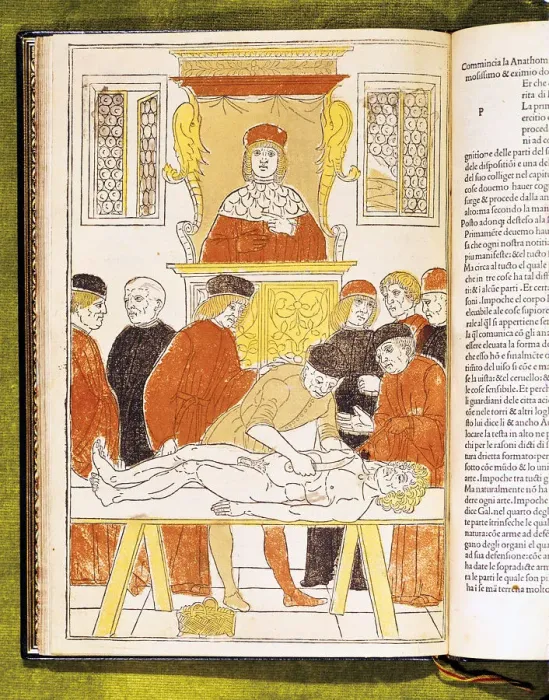 Commincia la Anathom
mosissimo & eximio do
Et che
rita di
P
La prim
ercitio
proced
ni ad co
gnitione delle parti del
dele dispositiõi e una de
del suo colliget nel capit
cose douemo hauer cog
surge & procede dalla an
altorma secondo la man
Posto adonq; desteso ala
Primamẽte deuemo hau
sa che ogni nostra notitia
piu manifeste: & el tacto
Ma circa al tucto el quale
che in tre cose ha tal diff
ti: & i alcũe parti. Et certa
soni. Impoche el corpo
eleuabile ale cose superio
rale al ql si appertiene
la ql comunica cõ gli an
essere eleuata la forma de
che esso hõ e finalmẽte
sistito del uiso si cõe e ma
se la uista: & el ceruello: &
le cose sensibile. Et perch
li guardiani dele citta aci
cõe nele torri & altri logh
sto lui dice li & ancho A
locare la testa in alto ne
chi per le rasoni dicti di
tura drietta formatorper
sotto cõe mũdo & lo uni
arte. Impoche tra tucti g
Ma naturalmente nõ ha
dere ogni arte. Impoche
dice Gal. nel quarto degl
te parte itrinseche le qua
natura: cõe arme ad defẽ
gano degli organi el qua
ad sua defensione: cõe ar
ha date le sopradicte arm
ra le parti le quale son pi
ha i se mã terrena molto